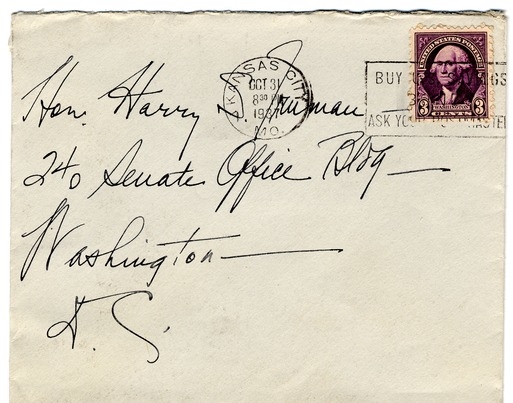 Hon. Harry S. Truman
240 Senate Office Bldg
Washington
D. C.
KANSAS CITY
OCT 31
8 30 PM
1937
MO.
BUY
ASK YOUR POSTMASTER
UNITED STATES POSTAGE
WASHINGTON
3 3
CENTS